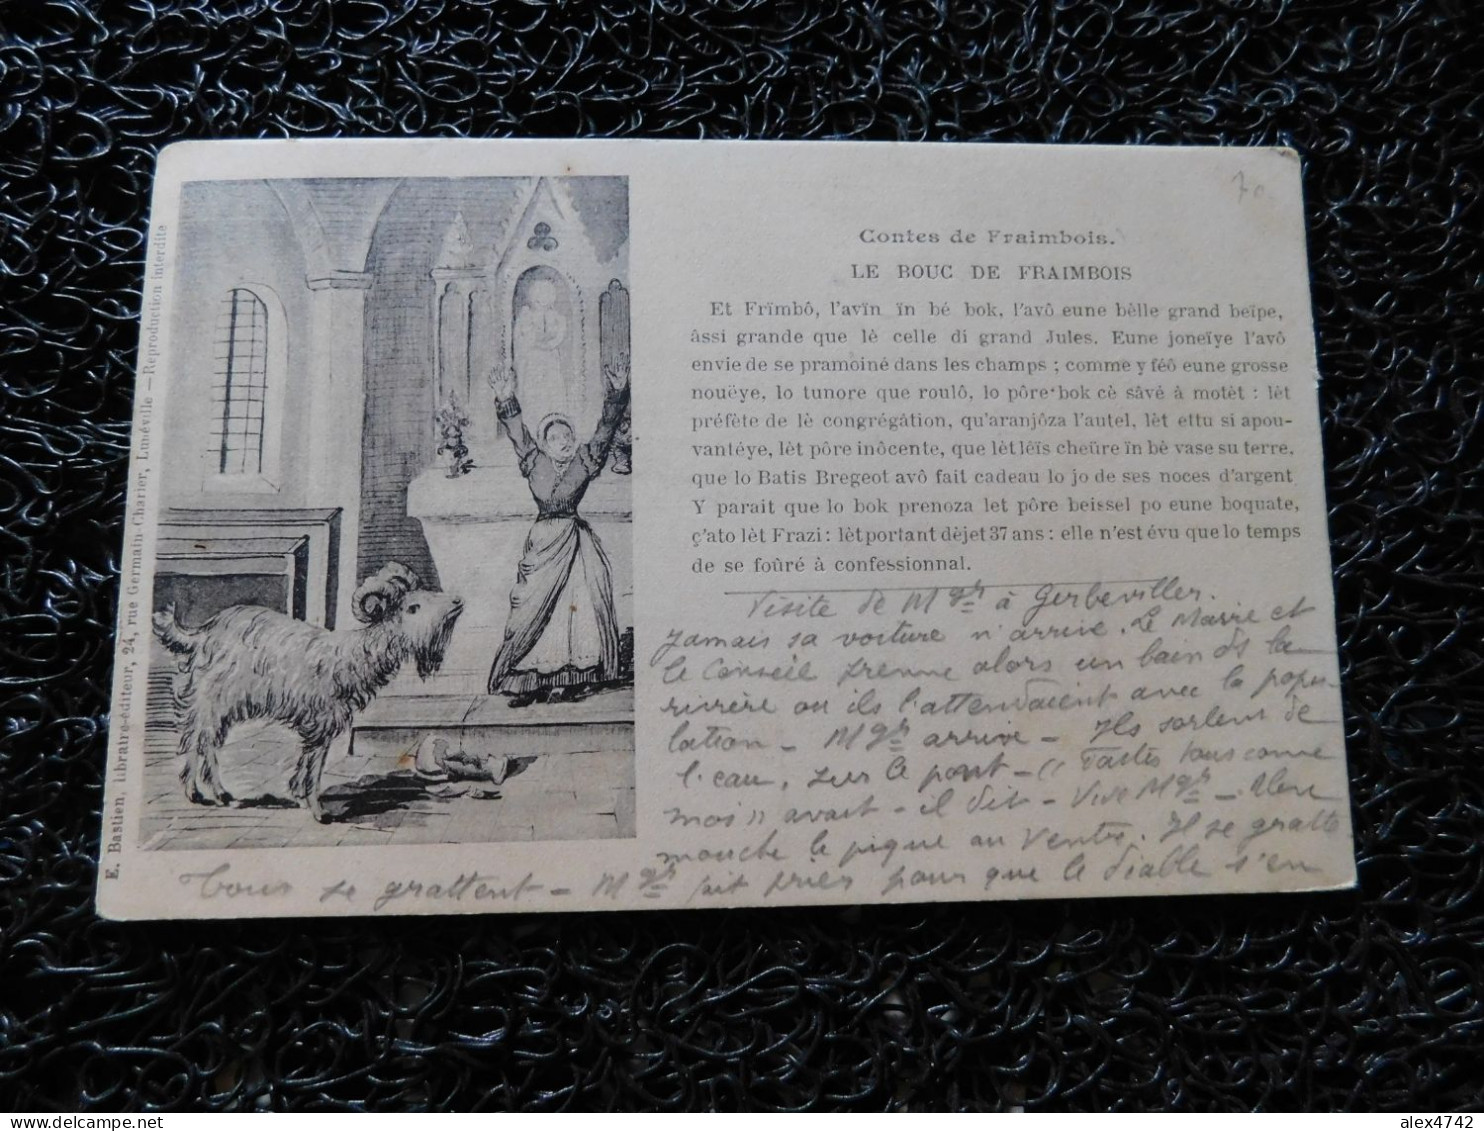 70
Contes de Fraimbois.
LE BOUC DE FRAIMBOIS
Et Frïmbô, l'avïn ïn bé bok, l'avô eune bêlle grand beïpe,
âssi grande que lè celle di grand Jules. Eune joneïye l'avô
envie de se pramoiné dans les champs ; comme y féô eune grosse
nouëye, lo tunore que roulô, lo pôre bok cè sâvé à motèt : lèt
préfète de lè congrégâtion, qu'aranjôza l'autel, lèt ettu si apou-
vantéye, lèt pôre inôcente, que lèt lêïs cheûre ïn bè vase su terre,
que lo Batis Bregeot avô fait cadeau lo jo de ses noces d'argent
Y parait que lo bok prenoza let pôre beissel po eune boquate,
ç'ato lèt Frazi : lèt portant dèjet 37 ans : elle n'est évu que lo temps
de se foûré à confessionnal.
Visite de Mgr à Gerbeviller.
Jamais sa voiture n'arrive. Le Maire et
le Conseil prenne alors un bain ds la
rivière ou ils l'attendaient avec la popu-
lation - Mgr arrive - Ils sortent de
l'eau, sur le pont - (( Faites tous comme
moi )) avait-il dit - Vive Mgr - Une
mouche le pique au ventre. Il se gratte
Tous se grattent - Mgr fait prier pour que le diable s'en
E. Bastien, libraire-éditeur, 24, rue Germain Charier, Lunéville — Reproduction interdite
alex4742